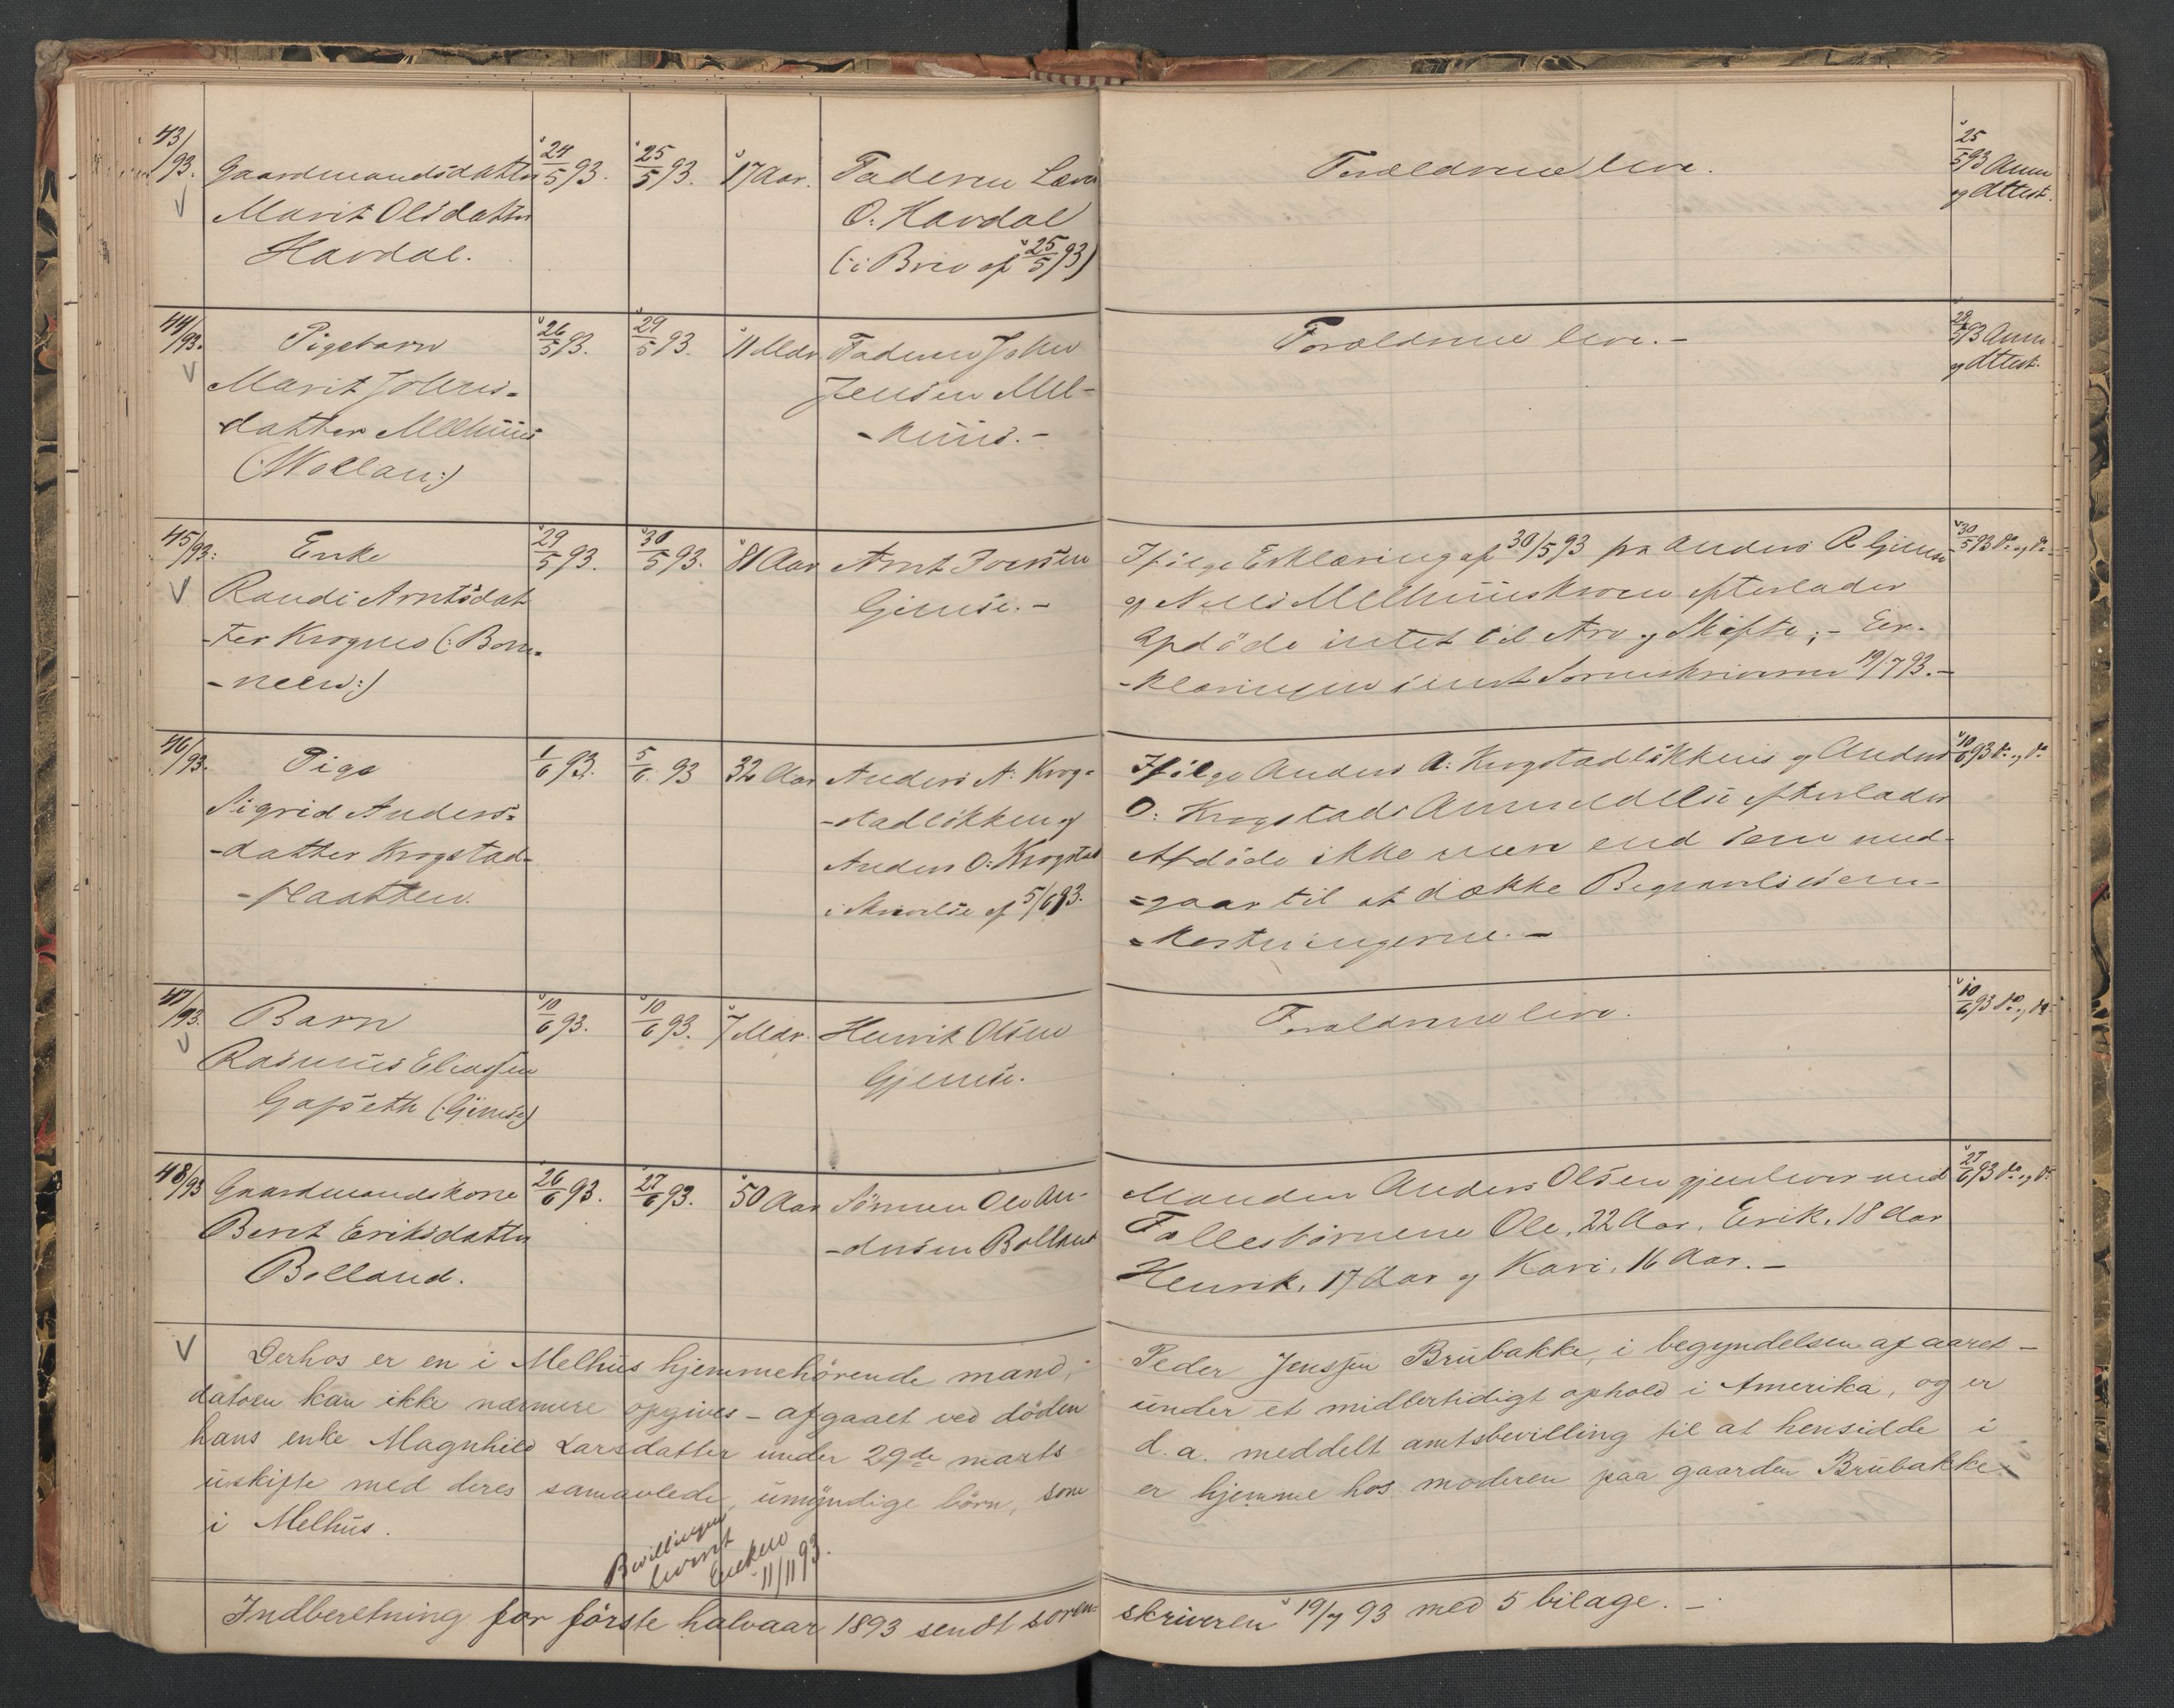 43/93. Gaardmandsdatter 24/5 93. 25/5 93. 17 Aar. Faderen Lars Forældrene leve. 25/5 93 Anm
Marit Olsdatter O. Havdal og Attest.
Havdal. (: i Brev af 25/5 93)
44/93. Pigebarn 26/5 93. 29/5 93. 11 Mdr. Faderen John Forældrene leve. - 29/5 93 Anm
Marit Johns- Jensen Mel- og Attest.
datter Melhuus - huus. -
(: Wollan :)
45/93. Enke 29/5 93. 30/5 93. 81 Aar Arnt Iversen Ifølge Erklæring af 30/5 93 fra Anders R. Gjemse 30/5 93 do og do
Randi Arntsdat- Gjemse. - og Nels Melhuuskroen efterlader
-ter Krognes (: Born- Afdøde intet til Arv og Skifte; - Er-
-neen :) -klæringen sendt Sorenskriveren 19/7 93. -
46/93. Pige 1/6 93. 5/6. 93 32 Aar Anders A. Krog- Ifølge Anders A. Krogstadløkkens og Anders 10/6 93 do og do
Sigrid Anders- -stadløkken og O. Krogstads Anmeldelse efterlader
-datter Krogstad- Anders O. Krogstad Afdøde ikke mere end som med-
-plaatten. i Skrivelse af 5/6 93. -gaar til at dække Begravelsesom-
-kostningerne. -
47/93. Barn 10/6 93. 10/6 93. 7 Mdr. Henrik Olsen Forældrene leve. 10/6 93 do og do
Rasmus Eliassen Gjemse.
Gapseth (: Gjemse)
48/93 Gaardmandskone 26/6 93. 27/6 93. 50 Aar Sønnen Ole An- Manden Anders Olsen gjenlever med 27/6 93 do og do
Berit Eriksdatter -dersen Bolland Fællesbørnene Ole, 22 Aar, Erik, 18 Aar
Bolland. Henrik, 17 Aar og Kari, 16 Aar. -
Derhos er en i Melhus hjemmehörende mand, Peder Jenssen Brubakke, i begyndelsen af aaret -
datoen kan ikke nærmere opgives - afgaaet ved döden under et midlertidigt ophold i Amerika, og er
hans enke Magnhild Larsdatter under 29de marts d. a. meddelt amtsbevilling til at hensidde i
uskifte med deres samavlede, umyndige börn, som er hjemme hos moderen paa gaarden Brubakke
i Melhus.
Bevillingen
leveret
Enken
11/11 93.
Indberetning for förste halvaar 1893 sendt soren- skriveren 19/7 93 med 5 bilage. -